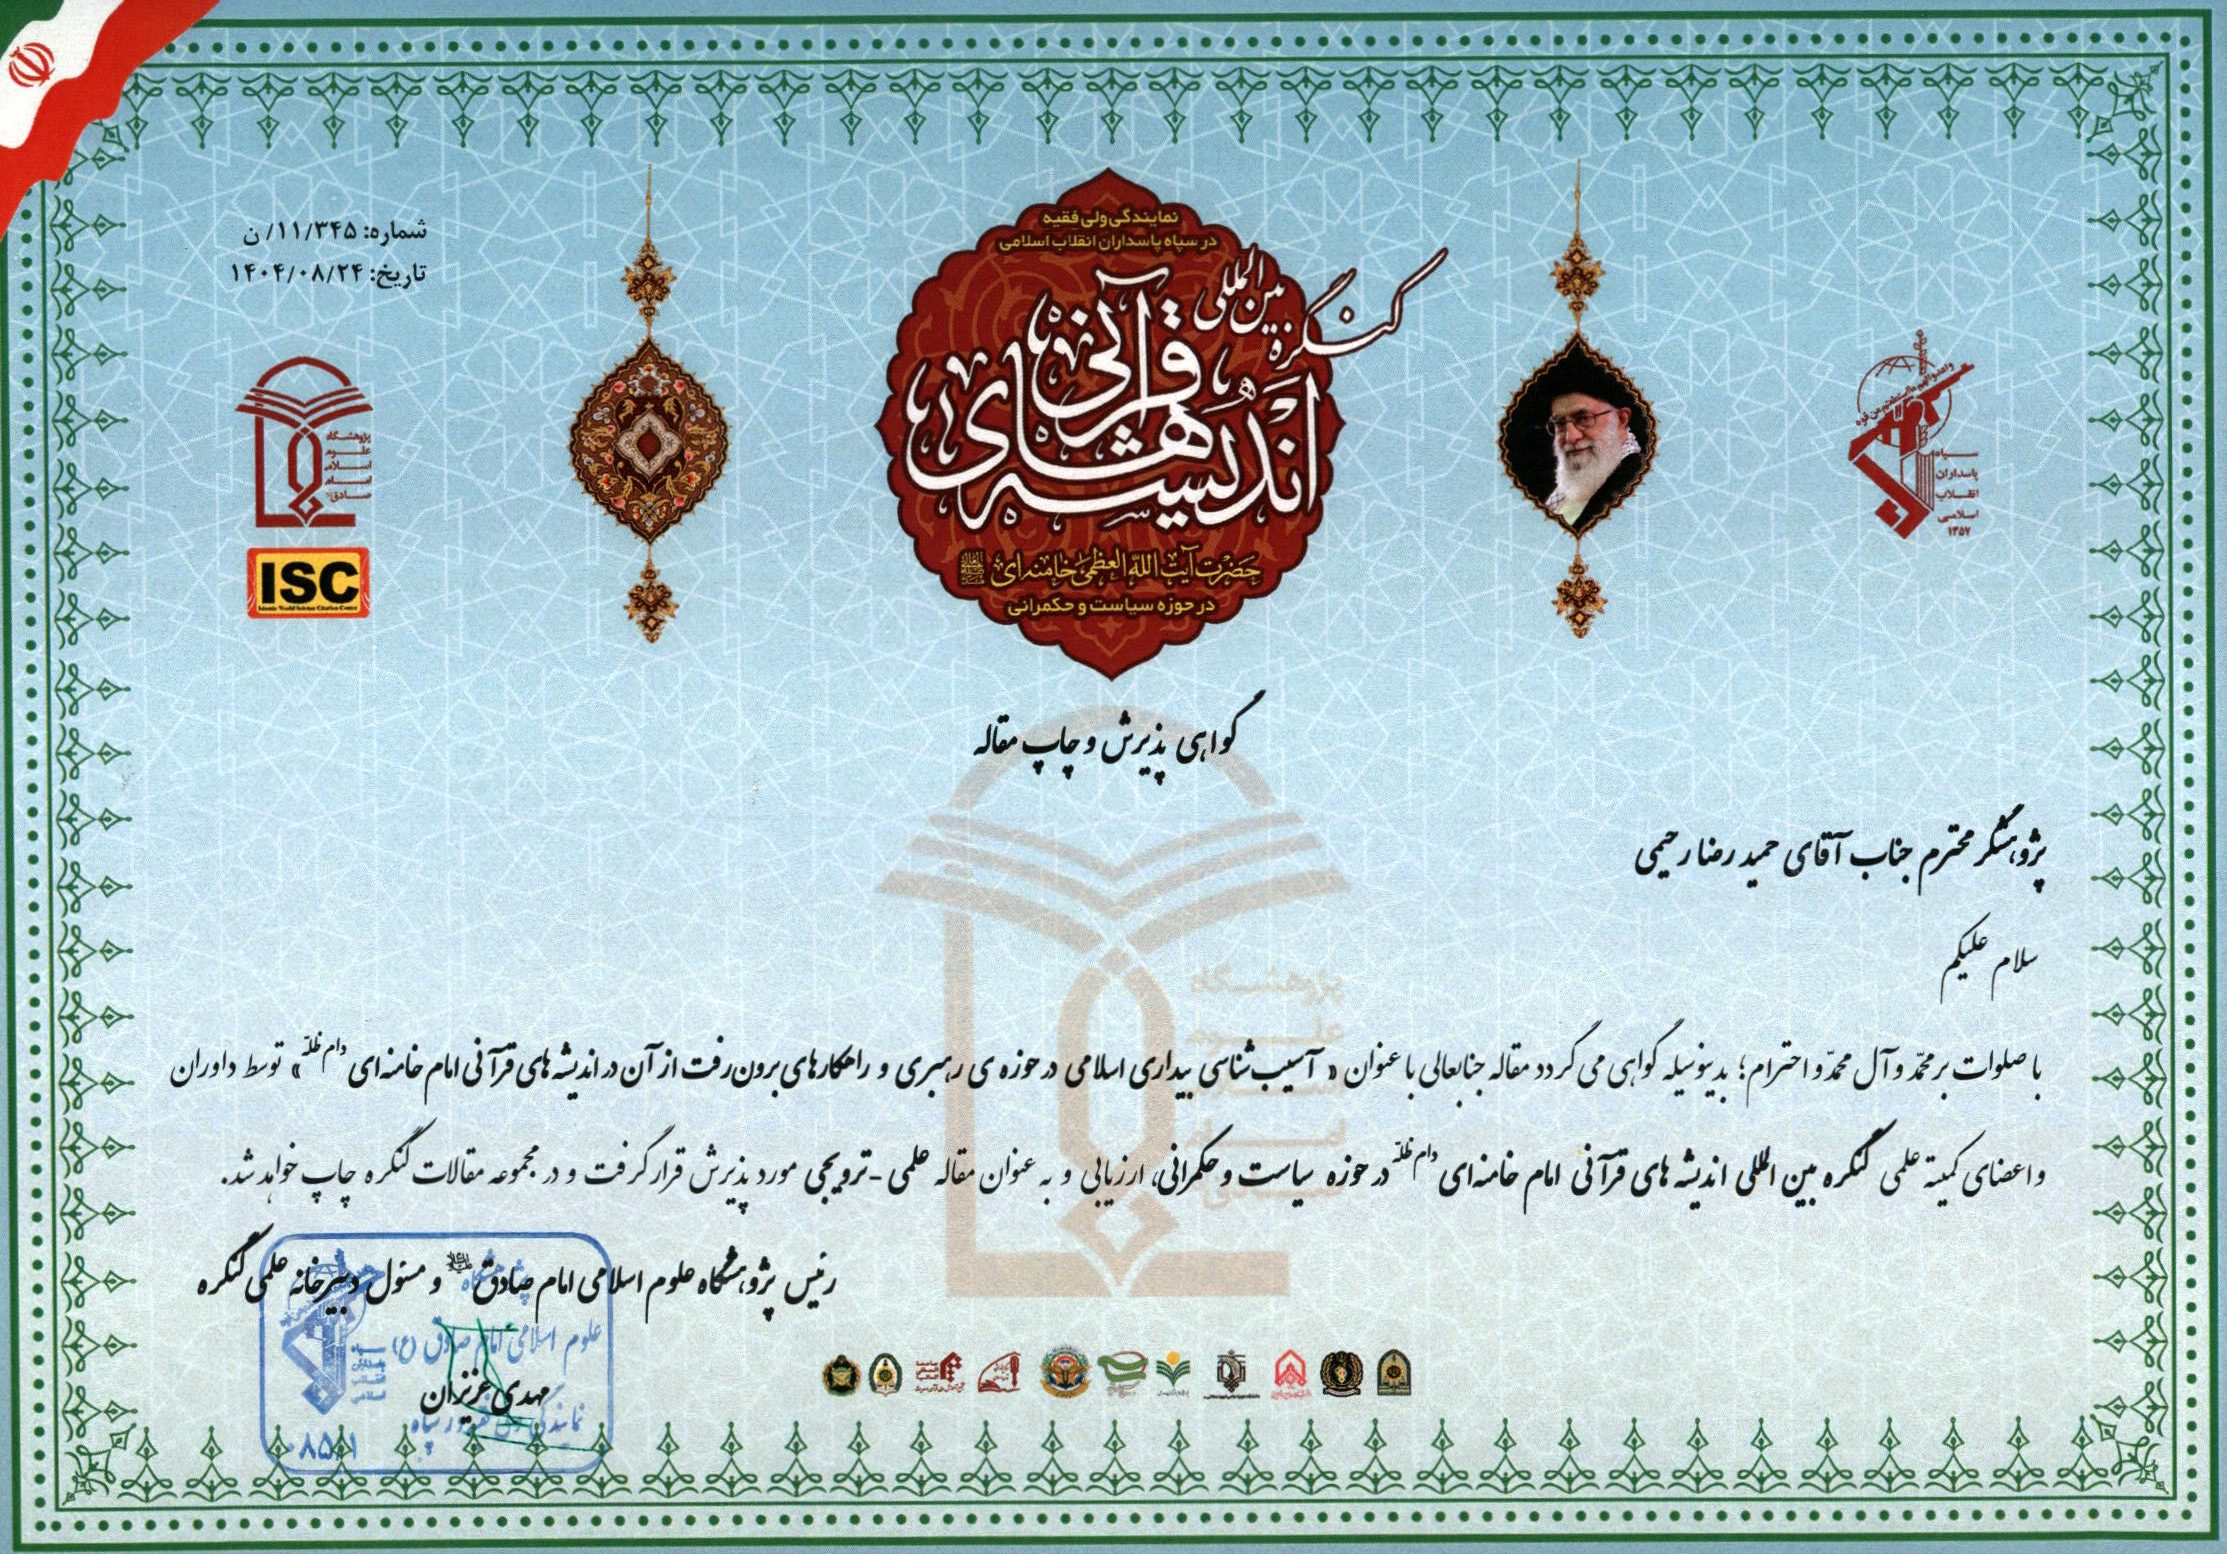 شماره: ۱۱/۳۴۵/ن
تاریخ: ۱۴۰۴/۰۸/۲۴
نمایندگی ولی فقیه
در سپاه پاسداران انقلاب اسلامی
کنگره بین المللی
اندیشه های قرآنی
حضرت آیت الله العظمی خامنه ای
در حوزه سیاست و حکمرانی
سپاه
پاسداران
انقلاب
اسلامی
۱۳۵۷
پژوهشگاه
علوم
اسلامی
امام
صادق
ISC
Islamic World Science Citation Center
گواهی پذیرش و چاپ مقاله
پژوهشگر محترم جناب آقای حمیدرضا رحیمی
سلام علیکم
با صلوات بر محمّد و آل محمّد و احترام؛ بدینوسیله گواهی می گردد مقاله جنابعالی با عنوان « آسیب شناسی بیداری اسلامی در حوزه ی رهبری و راهکارهای برون رفت از آن در اندیشه های قرآنی امام خامنه ای دام ظلّه » توسط داوران
و اعضای کمیته علمی کنگره بین المللی اندیشه های قرآنی امام خامنه ای دام ظلّه در حوزه سیاست و حکمرانی، ارزیابی و به عنوان مقاله علمی - ترویجی مورد پذیرش قرار گرفت و در مجموعه مقالات کنگره چاپ خواهد شد.
رئیس پژوهشگاه علوم اسلامی امام صادق و مسئول دبیرخانه علمی کنگره
علوم اسلامی امام صادق (ع)
مهدی عزیزان